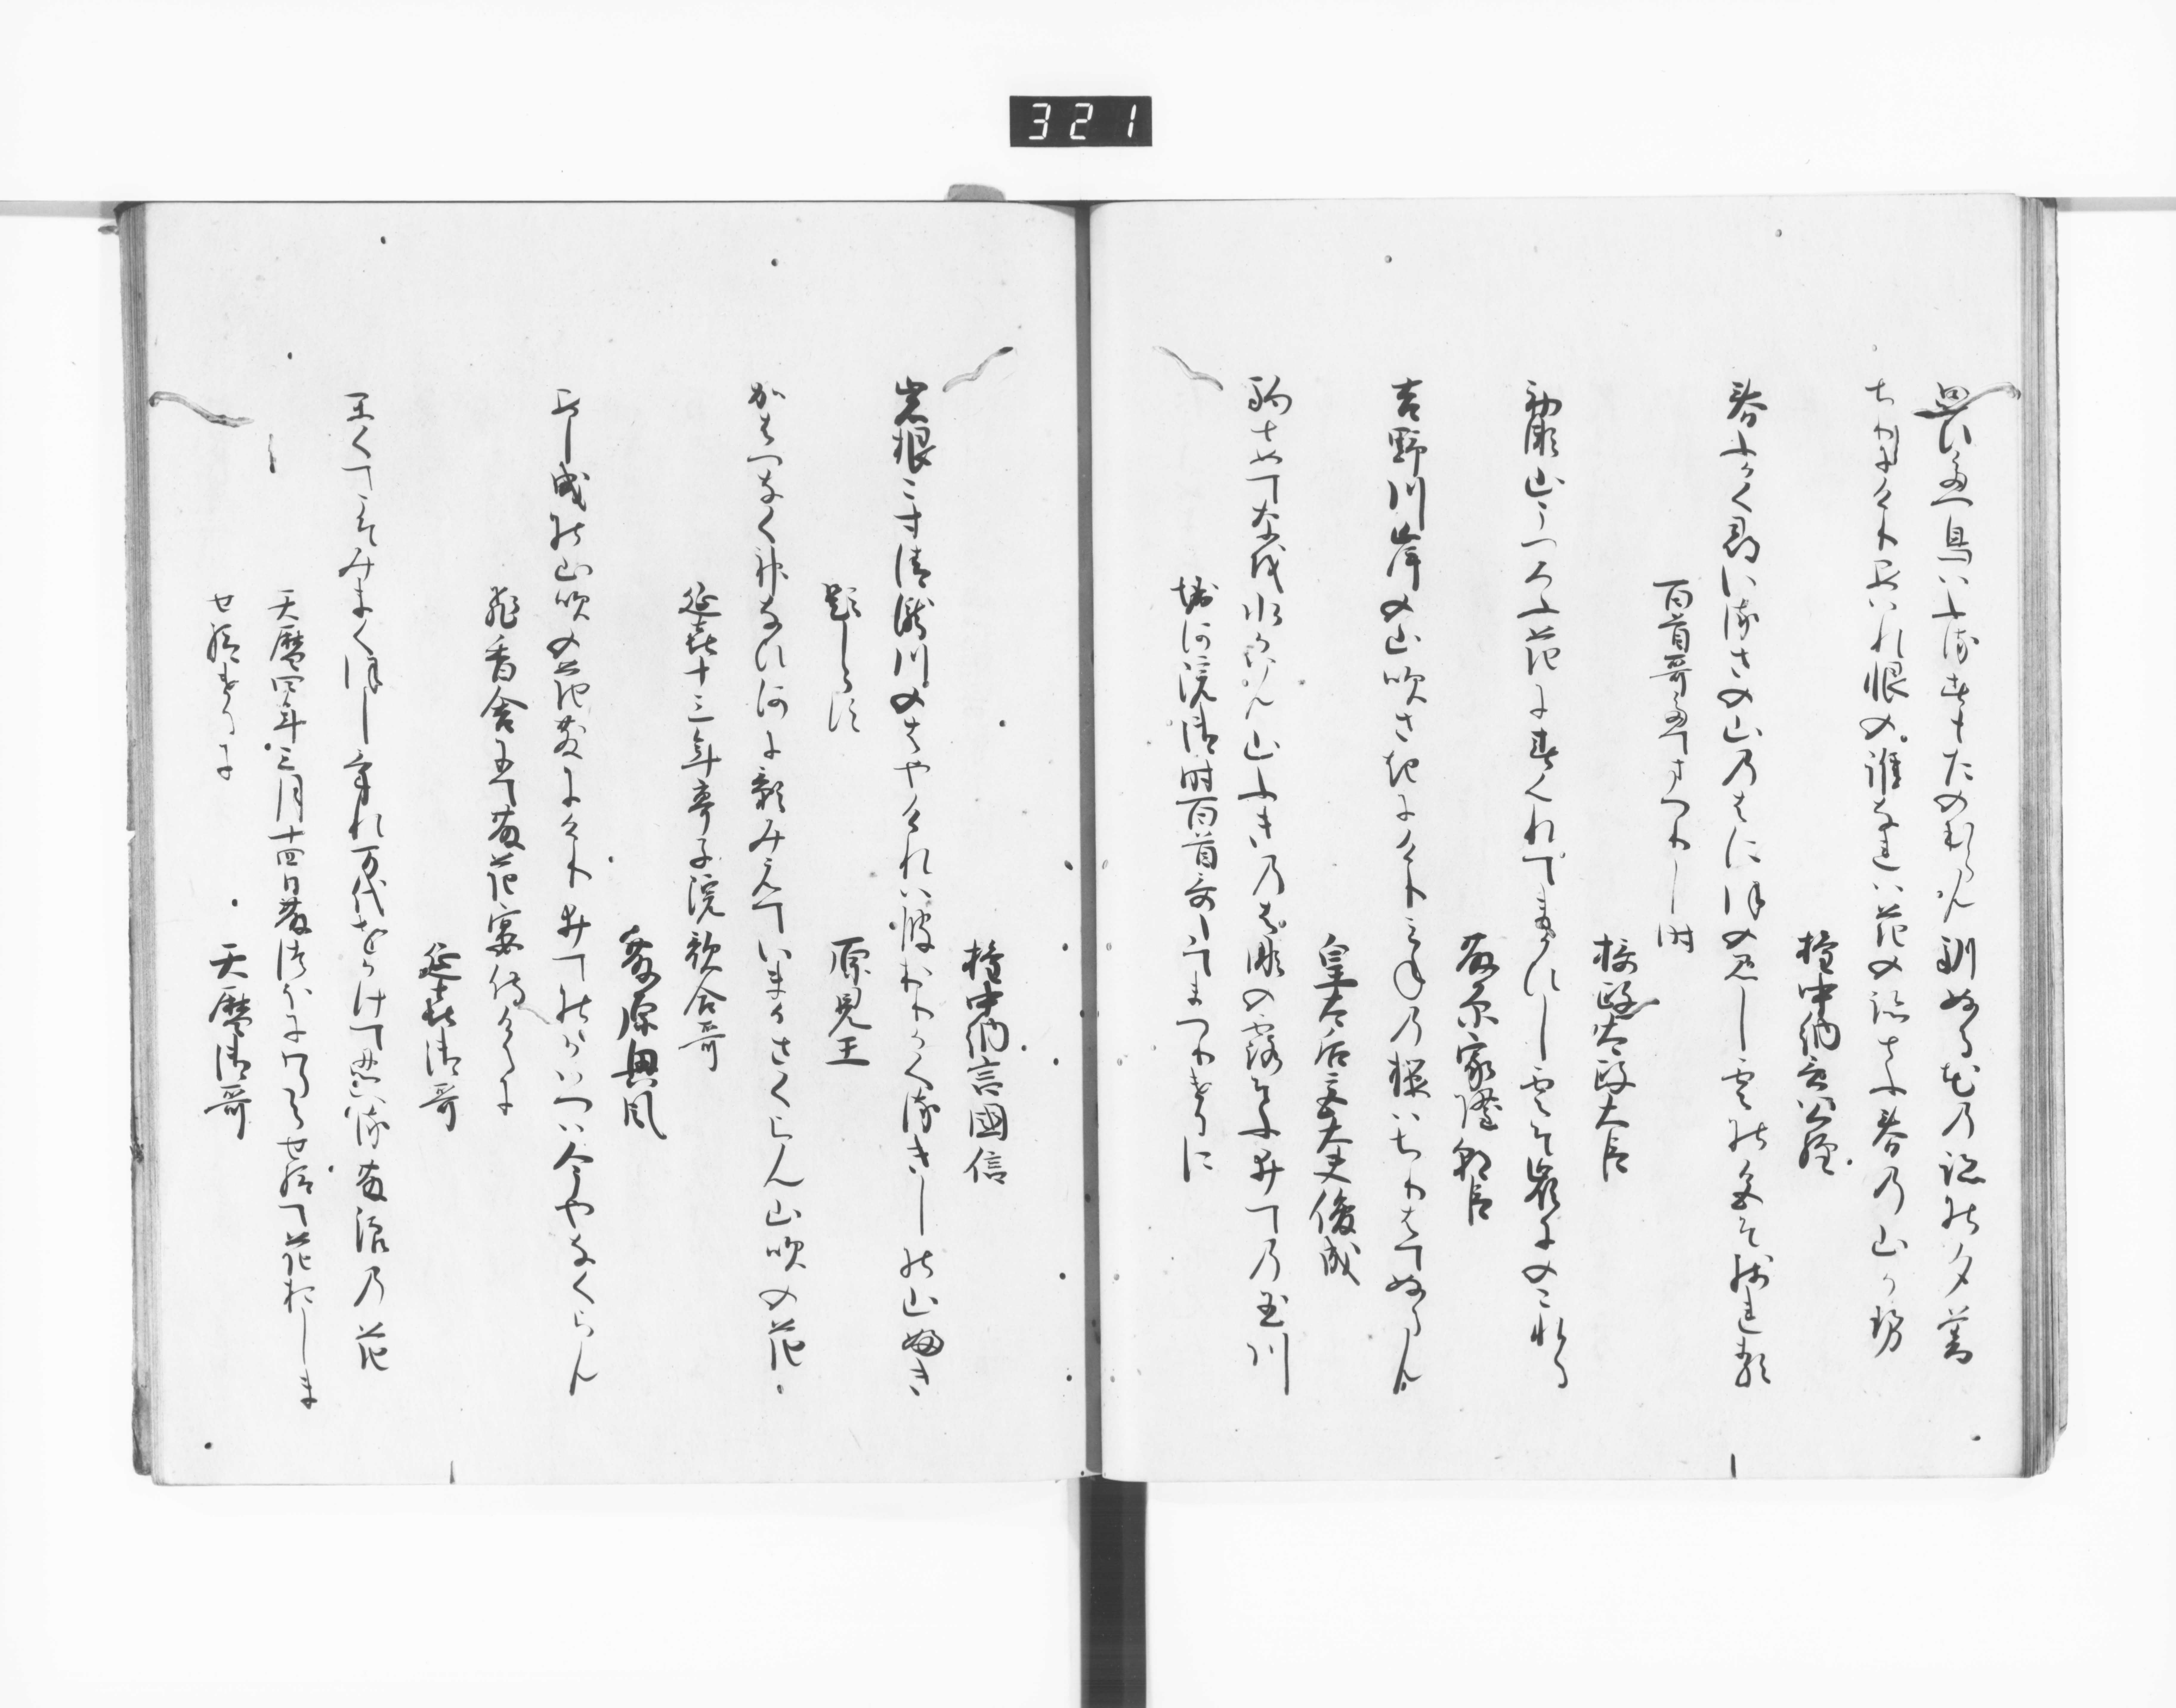 思ひ立鳥はふる巣もたのむらん馴ぬる花の跡の夕暮
ちりにけり哀れ恨の誰なれは花の跡とふ春の山かせ
権中納言公経
春ふかく尋いるさの山のはにほのみし雲の色そ残れる
百首哥たてまつりし時
摂政太政大臣
初瀬山うつろふ花に春くれてまかひし雲そ嶺にのこれる
藤原家隆朝臣
吉野川岸の山吹さきにけりみねの桜はちりはてぬらん
皇太后宮大夫俊成
駒とめてなを水かはん山ふきのはなの露そふ井ての玉川
堀河院御時百首哥たてまつりけるに
権中納言國信
岩根こす清瀧川のはやけれは波おりかくるきしの山ふき
題しらす
厚見王
かはつなく神なひ河に影みえていまかさくらん山吹の花
延喜十三年亭子院歌合哥
藤原興風
足引の山吹の花散にけり井てのかはつは今やなくらん
飛香舎にて藤花宴侍けるに
延喜御哥
かくてこそみまくほしけれ万代をかけて忍へる藤浪の花
天暦四年三月十四日藤つほにわたらせ給て花おしま
せ給けるに
天暦御哥